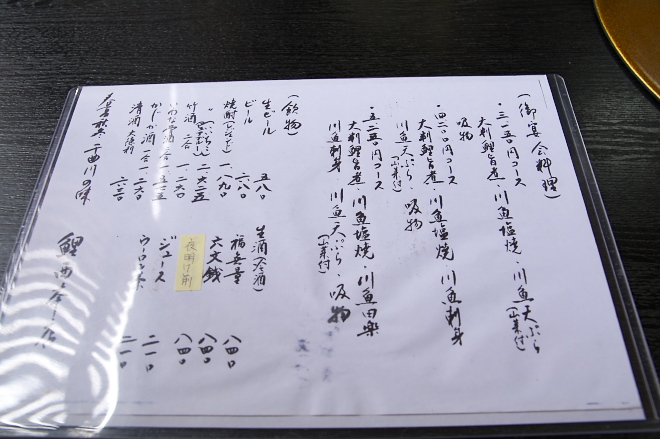 (御宴会料理)
・三一五〇円コース
大判鯉旨煮・川魚塩焼・川魚天ぷら(山菜付)
吸物
・四二〇〇円コース
大判鯉旨煮・川魚塩焼・川魚刺身
川魚天ぷら(山菜付)・吸物
・五二五〇円コース
大判鯉旨煮・川魚塩焼・川魚田楽
川魚刺身・川魚天ぷら(山菜付)・吸物
(飲物)
生ビール 五八〇
ビール 六八〇
焼酎 一、八九〇
〃 二、六二五
竹酒 二合
一合
かじか酒 二合
清酒 大徳利 六三〇
千曲川の味
生酒(冷酒)
福無量 八四〇
六文銭 八四〇
夜明け前 八四〇
ジュース 二一〇
ウーロン茶 二一〇
鯉西